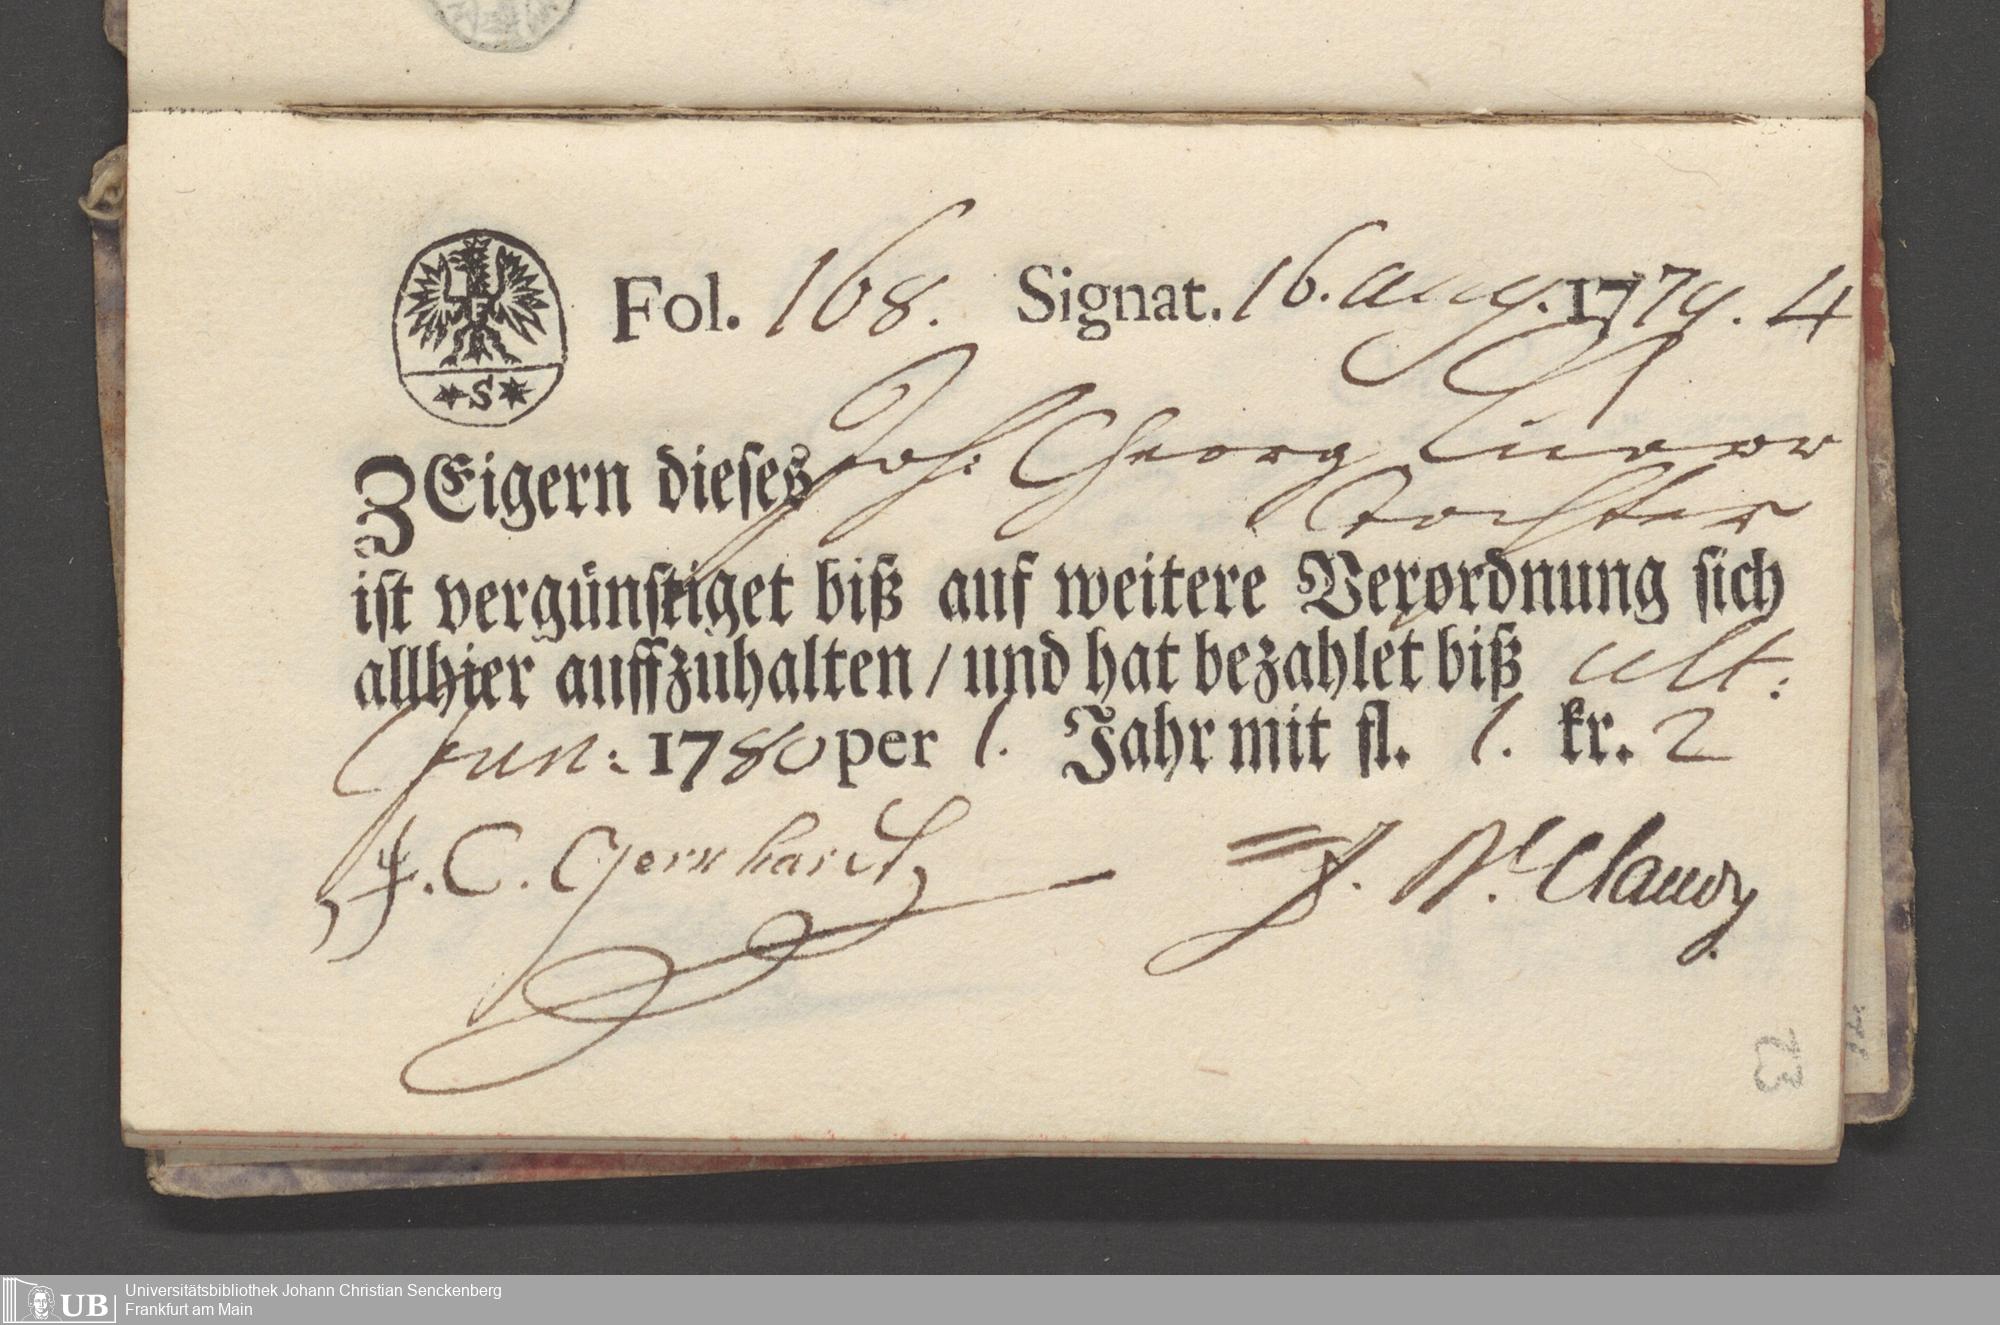 Fol. 168. Signat. 16. Aug. 1779. 4
S
ZEigern dieses Joh: Georg
Tochter
ist vergünstiget biß auf weitere Verordnung sich
allhier auffzuhalten / und hat bezahlet biß ult:
Jun: 1780 per 1. Jahr mit fl. 1. kr. 2
J. C. Gernhardt
J. N. Claudy
23
UB Universitätsbibliothek Johann Christian Senckenberg
Frankfurt am Main